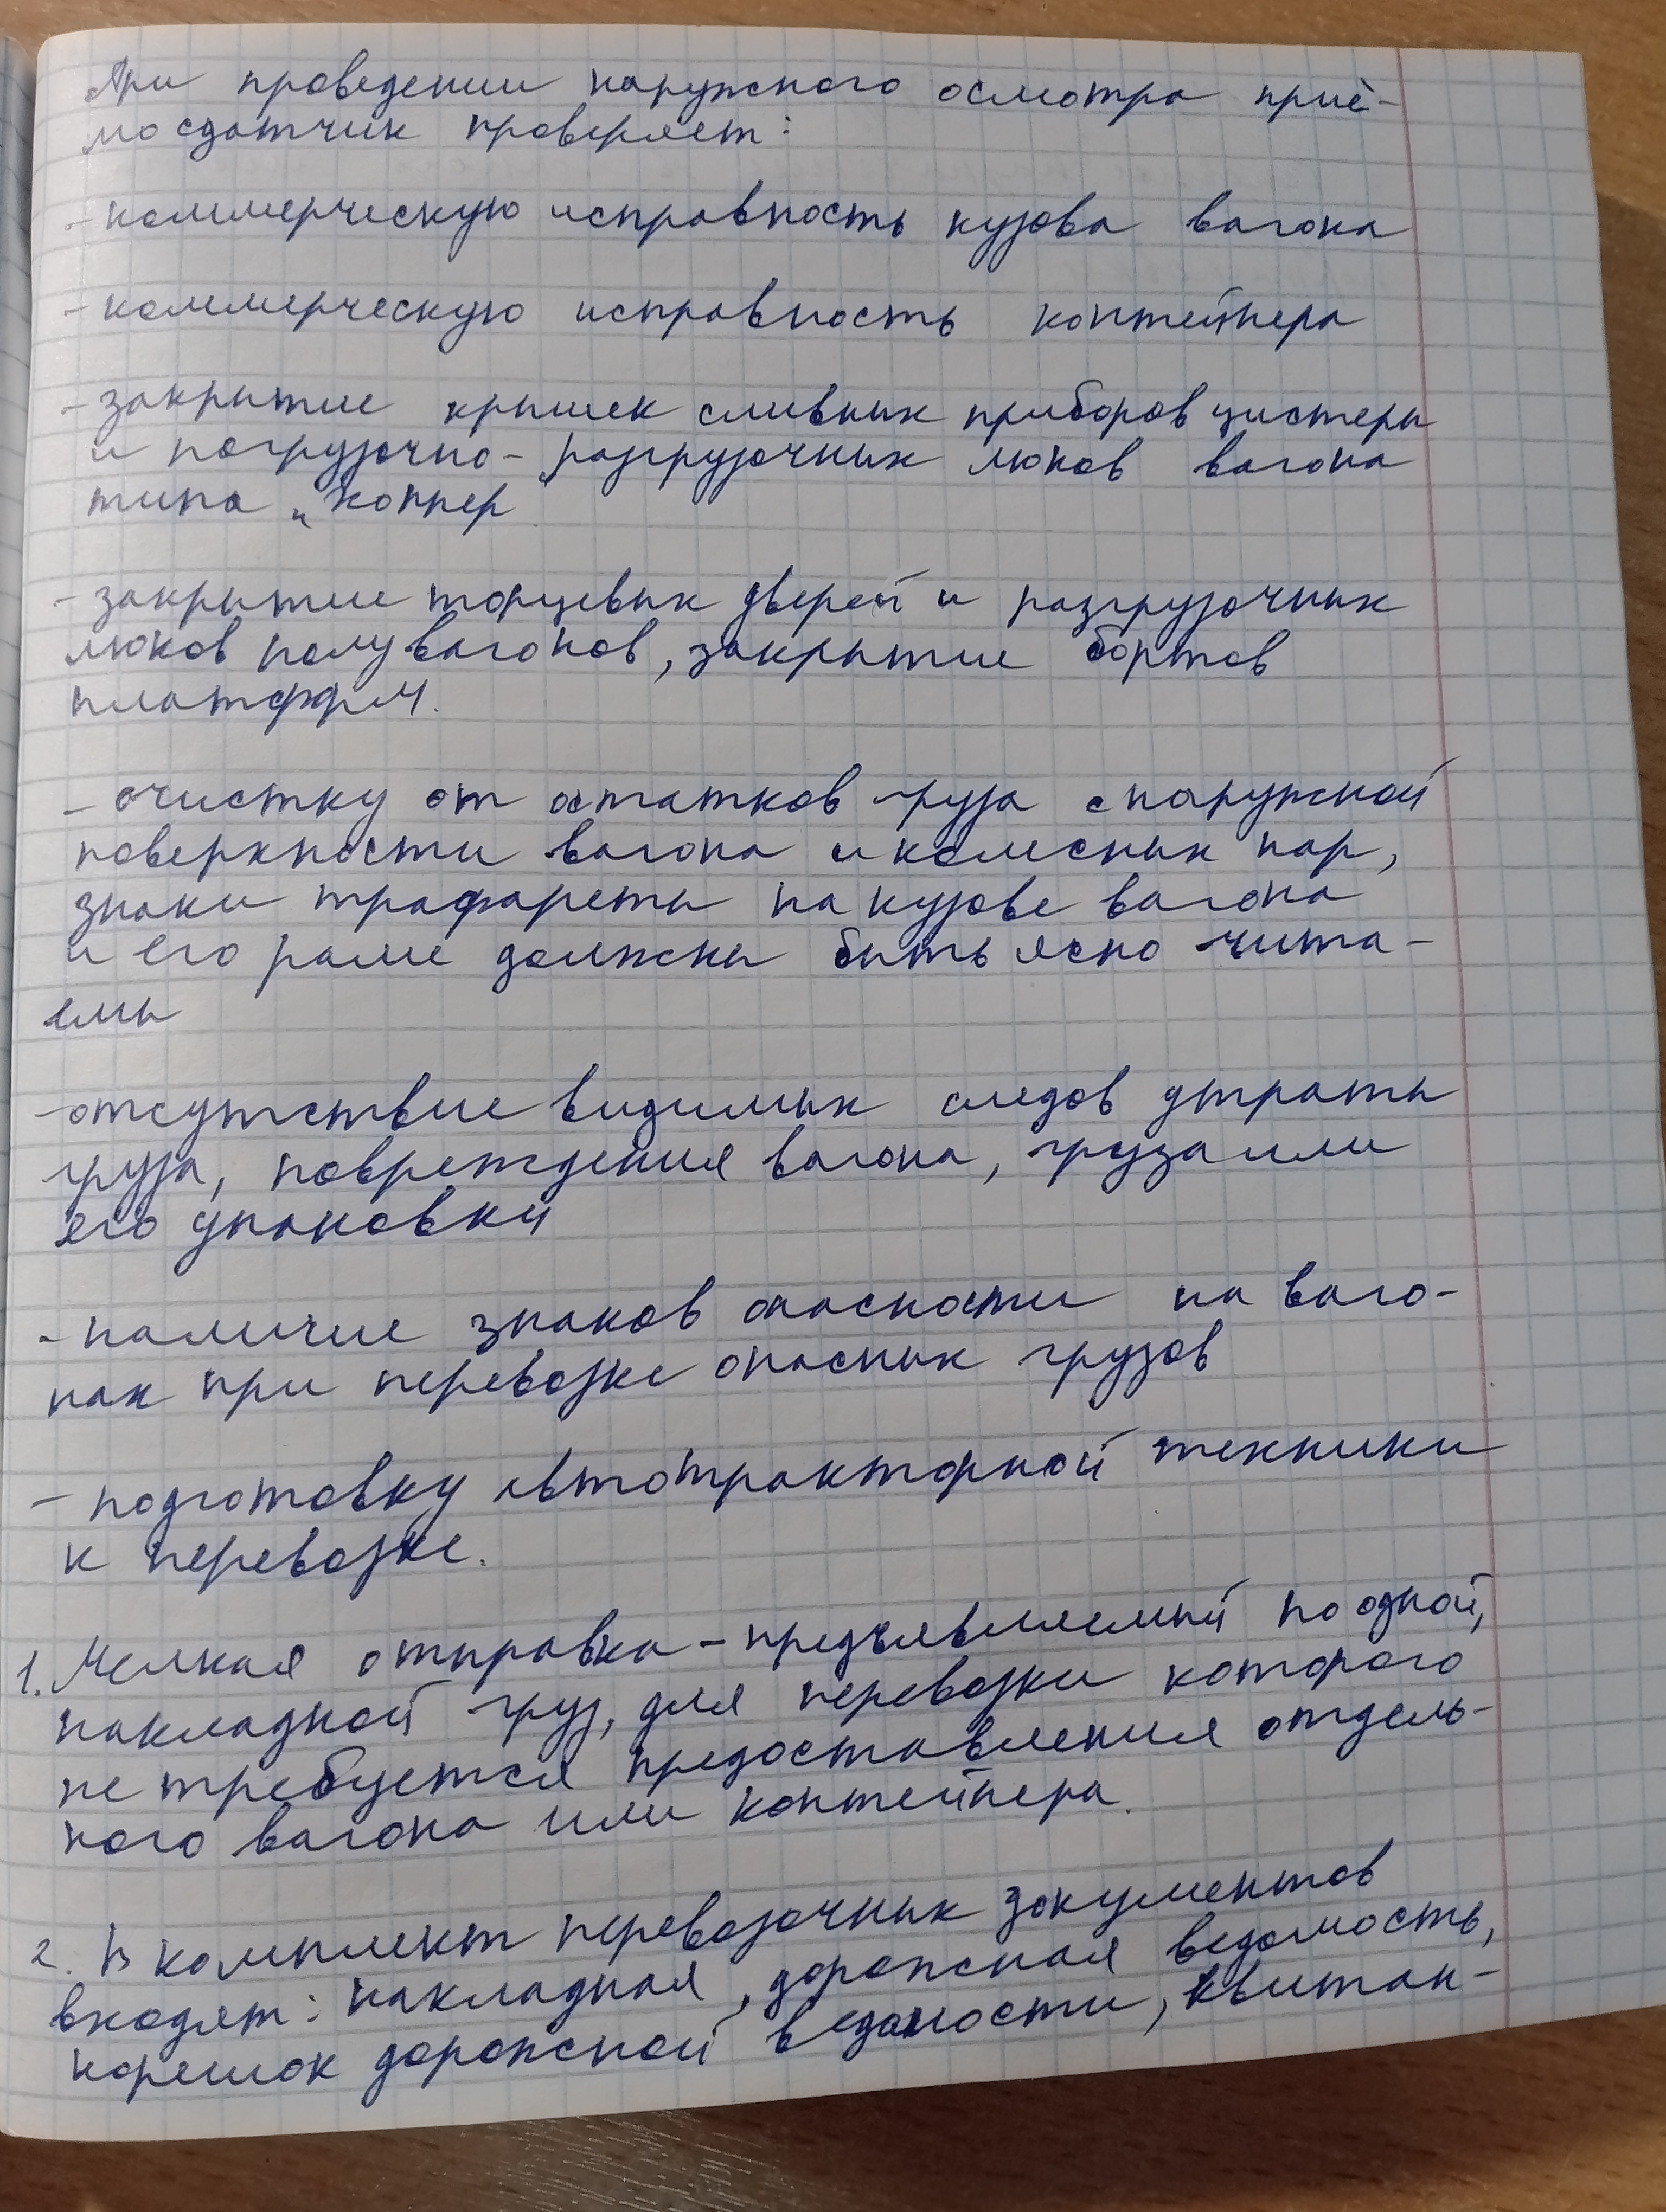 При проведении наружного осмотра приё-
мосдатчик проверяет:
- коммерческую исправность кузова вагона
- коммерческую исправность контейнера
- закрытие крышек сливных приборов цистерн
и погрузочно-разгрузочных люков вагона
типа „Хоппер"
- закрытие торцевых дверей и разгрузочных
люков полувагонов, закрытие бортов
платформ.
- очистку от остатков груза с наружной
поверхности вагона и колесных пар,
знаки трафареты на кузове вагона
и его раме должны быть ясно чита-
емы
- отсутствие видимых следов утраты
груза, повреждения вагона, груза или
его упаковки
- наличие знаков опасности на ваго-
нах при перевозке опасных грузов
- подготовку автотракторной техники
к перевозке.
1. Мелкая отправка - предъявляемый по одной,
накладной груз, для перевозки которого
не требуется предоставления отдель-
ного вагона или контейнера.
2. В комплект перевозочных документов
входят: накладная, дорожная ведомость,
корешок дорожной ведомости, квитан-